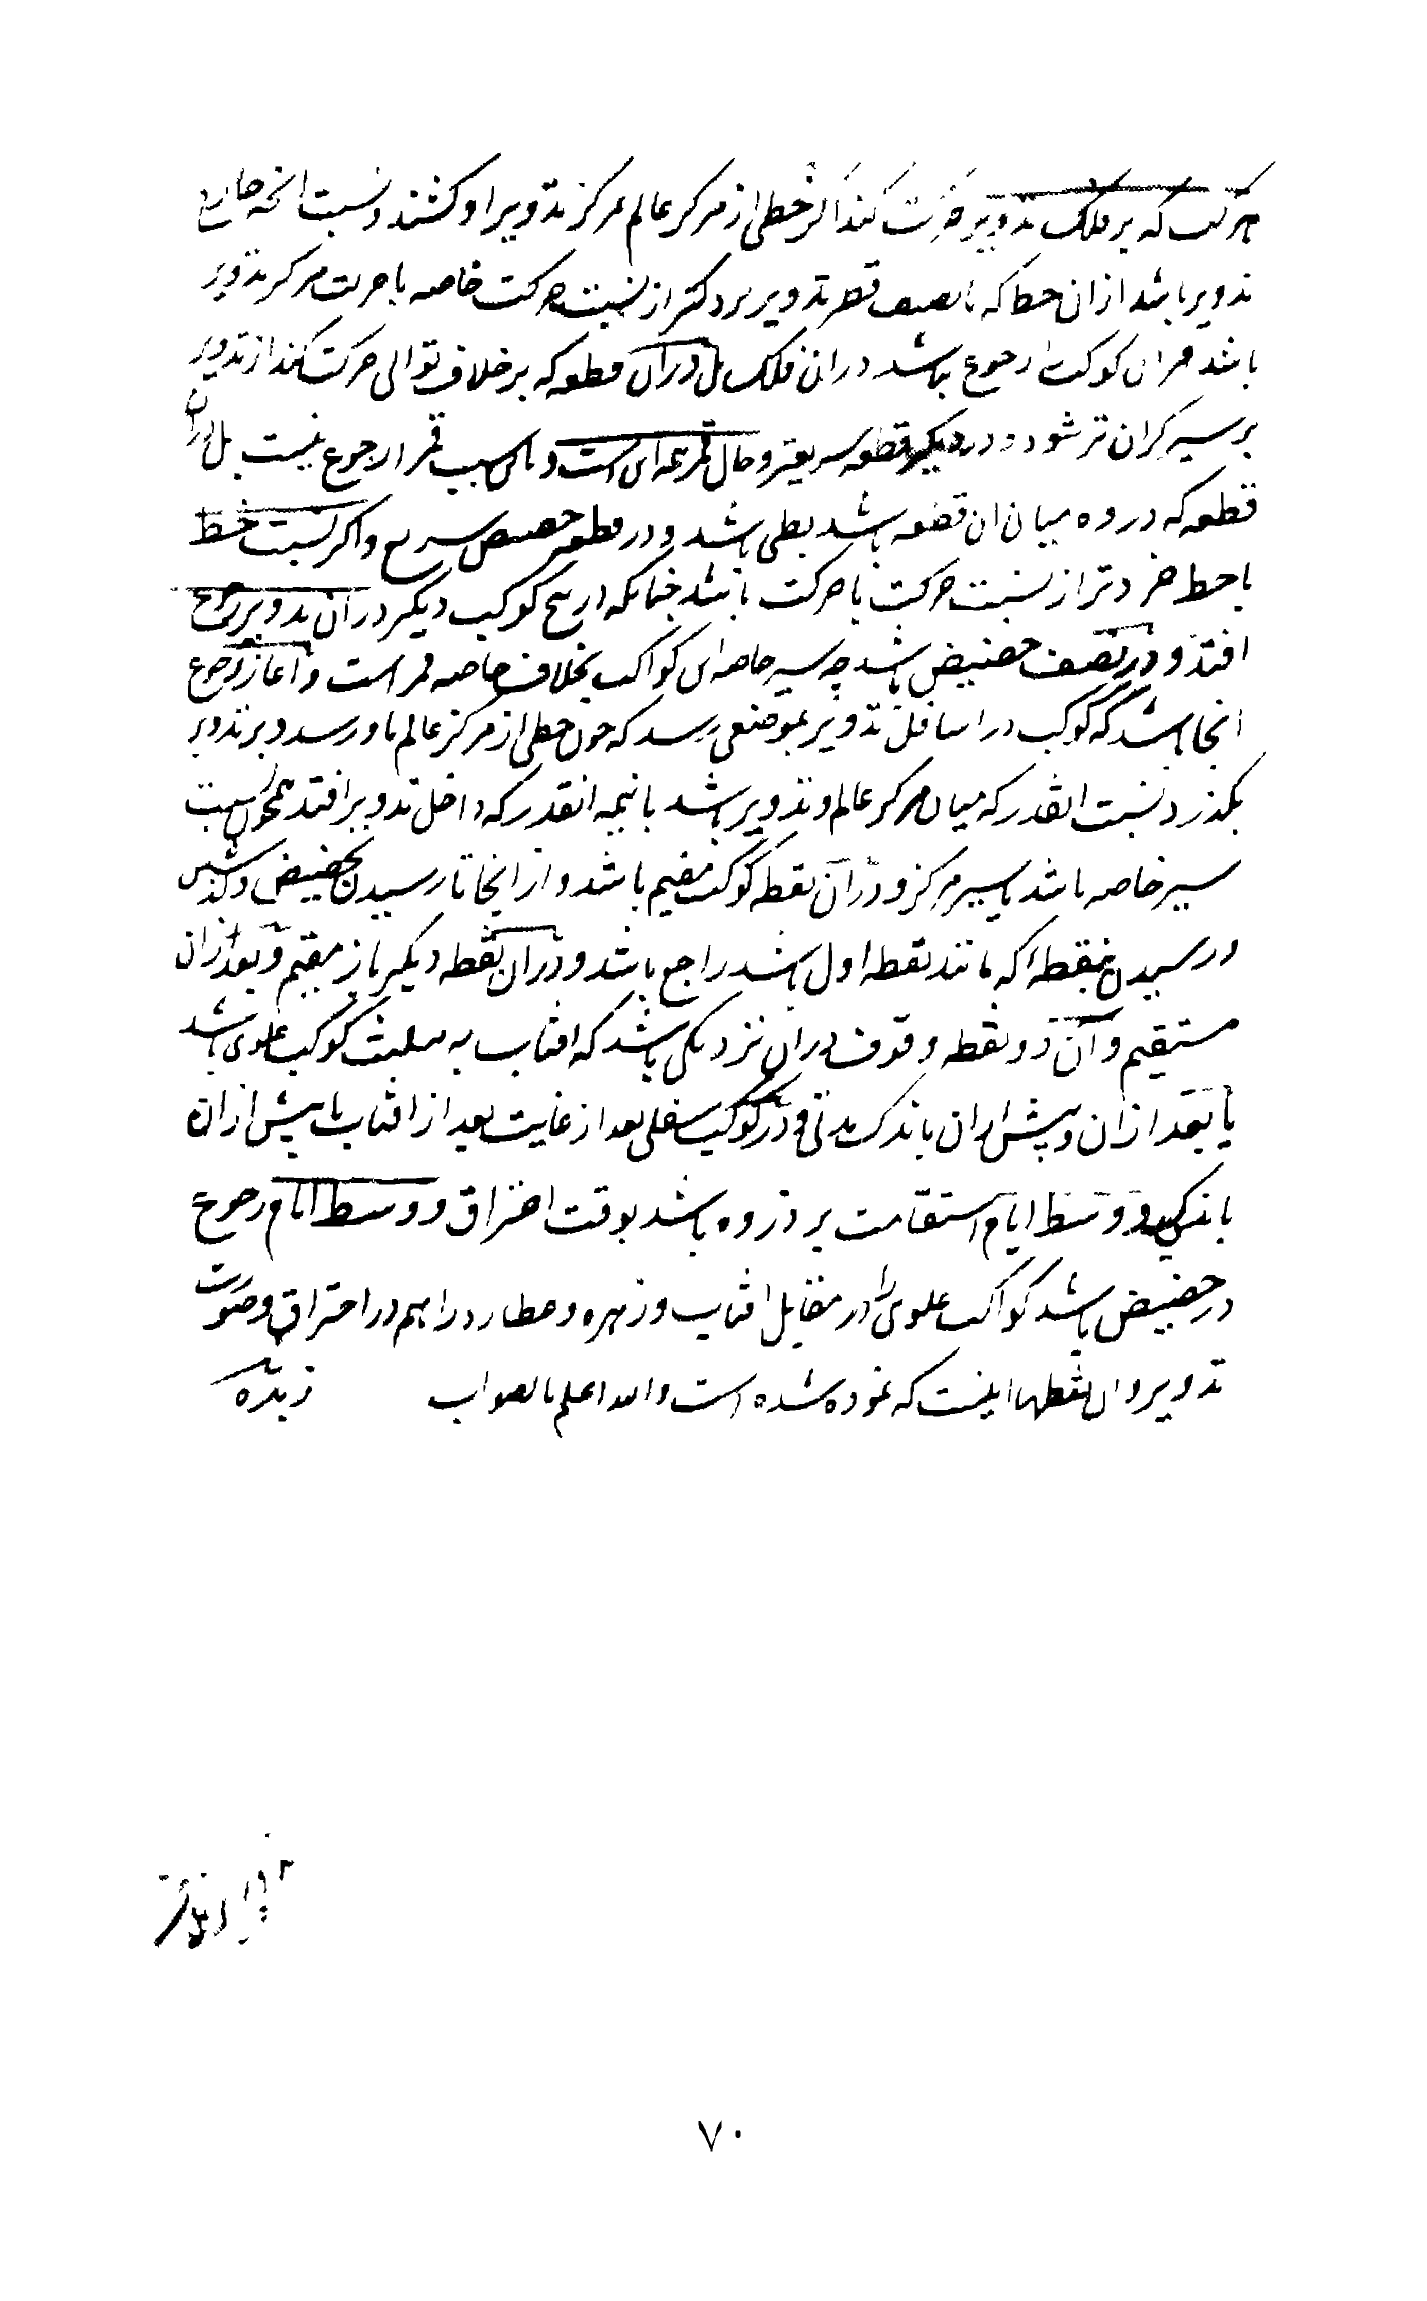 هر کوکب که بر فلک تدویر حرکت کند اگر خطی از مرکز عالم بمرکز تدویر او کشند و نسبت انچه خارج
تدویر باشد ازان خط که با نصف قطر تدویر بزرگتر از نسبت حرکت خاصه با حرکت مرکز تدویر
باشد مران کوکب را رجوع نباشد دران فلک بل دران قطعه که بر خلاف توالی حرکت کند از تدویر
بر سیر گران تر شود و در دیگر قطعه سریعتر و حال قمر همه این است و باین سبب قمر را رجوع نیست بل دران
قطعه که دروه میان ان قطعه باشد بطی باشد و در قطعه حضیض سریع و اگر نسبت خط
با خط خردتر از نسبت حرکت با حرکت باشد چنانکه در پنج کوکب دیگر دران تدویر رجوع
افتد و در نصف حضیض باشد چه سیر خاصه این کواکب بخلاف خاصه قمر است و آغاز رجوع
انجا باشد که کوکب در اسافل تدویر بموضعی رسد که چون خطی از مرکز عالم باو رسد و بر تدویر
بگذرد نسبت انقدر که میان مرکز عالم و تدویر باشد با نیمه انقدر که داخل تدویر افتد همچون نسبت
سیر خاصه باشد با سیر مرکز و دران نقطه کوکب مقیم باشد و از انجا تا رسیدن بحضیض و گذشتن
و رسیدن بنقطه که مانند نقطه اول باشد راجع باشد و دران نقطه دیگر باز مقیم و بعد ازان
مستقیم و آن دو نقطه وقوف دران نزدیکی باشد که افتاب به تثلیث کوکب علوی باشد
یا بعد ازان و پیش ازان باندک مدتی و در کوکب سفلی بعد از غایت بعد از افتاب یا پیش ازان
باندکی و وسط ایام استقامت بر ذروه باشد بوقت احتراق و وسط ایام رجوع
در حضیض باشد کواکب علوی را در مقابل افتاب و زهره و عطارد را هم در احتراق و صورت
تدویر و ان نقطها اینست که نموده شده است والله اعلم بالصواب زبده
۷۰